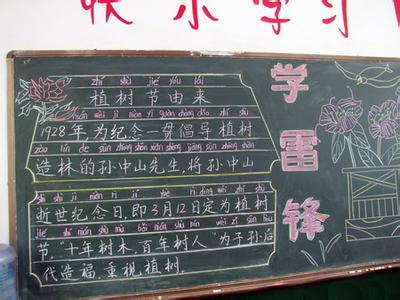 快乐学习
zhí shù jié yóu lái
植树节由来
wèi jì niàn yí guàn chàng dǎo zhí shù
1928年为纪念一毋倡导植树
zào lín de sūn zhōng shān xiān shēng jiāng sūn zhōng shān
造林的孙中山先生,将孙中山
shì shì jì niàn rì jí yuè rì dìng wéi zhí shù
逝世纪念日,即3月12日定为植树
jié shí nián shù mù bǎi nián shù rén wèi zǐ sūn hòu
节,"十年树木,百年树人"为子孙后
代造福,重视植树.
学雷锋